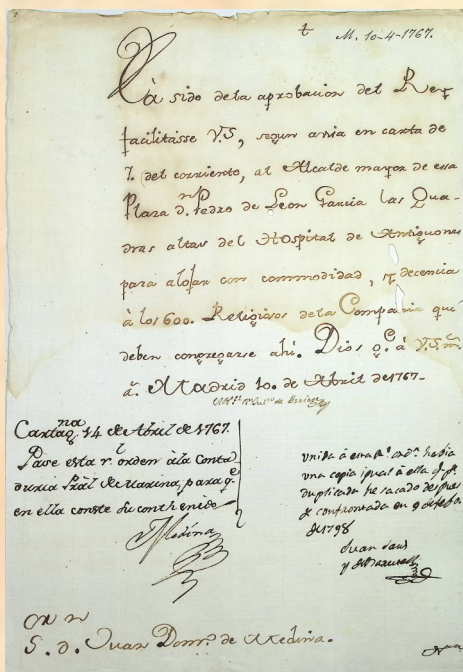 t M. 10-4-1767.
Hà sido dela aprobacion del Rey
facilitàsse V.S, segun avia en carta de
7. del corriente, al Alcalde mayor de essa
Plaza dn. Pedro de Leon Garcia las Qua-
dras altas del Hospital de Antiguones
para alojar con commodidad, y decencia
à los 600. Religiosos dela Compañia que
deben congregarse ahi. Dios g.e à V.S m.s
a.s Madrid 10. de Abril de 1767.
Cartag.na 14 de Abril de 1767.
Pase esta r.l orden àla Conta
duria Pral de Marina, para q.e
en ella conste su conthenido
Medina
unida à esta r.l ord.n habia
una copia igual à ella q.e p.r
duplicada he sacado despues
de confrontada en 9 de feb.o
de 1798
Juan Sans
y de
S. D. Juan Dom.o de Medina.